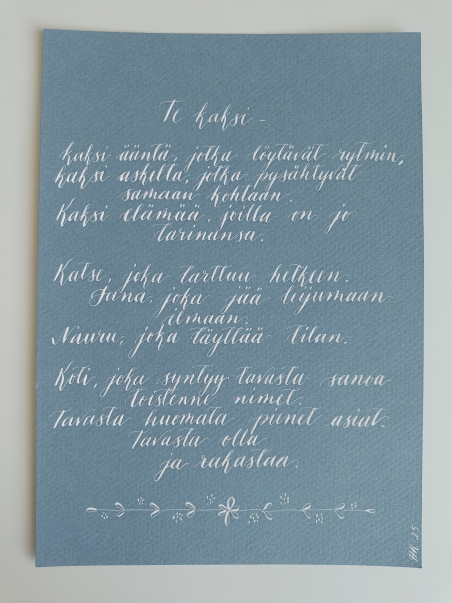 Te kaksi –
Kaksi ääntä, jotka löytävät rytmin,
kaksi askelta, jotka pysähtyvät
samaan kohtaan.
Kaksi elämää, joilla on jo
tarinansa.
Katse, joka tarttuu hetkeen.
Sana, joka jää leijumaan
ilmaan.
Nauru, joka täyttää tilan.
Koti, joka syntyy tavasta sanoa
toistenne nimet.
Tavasta huomata pienet asiat.
Tavasta olla
ja rakastaa.
HK 25